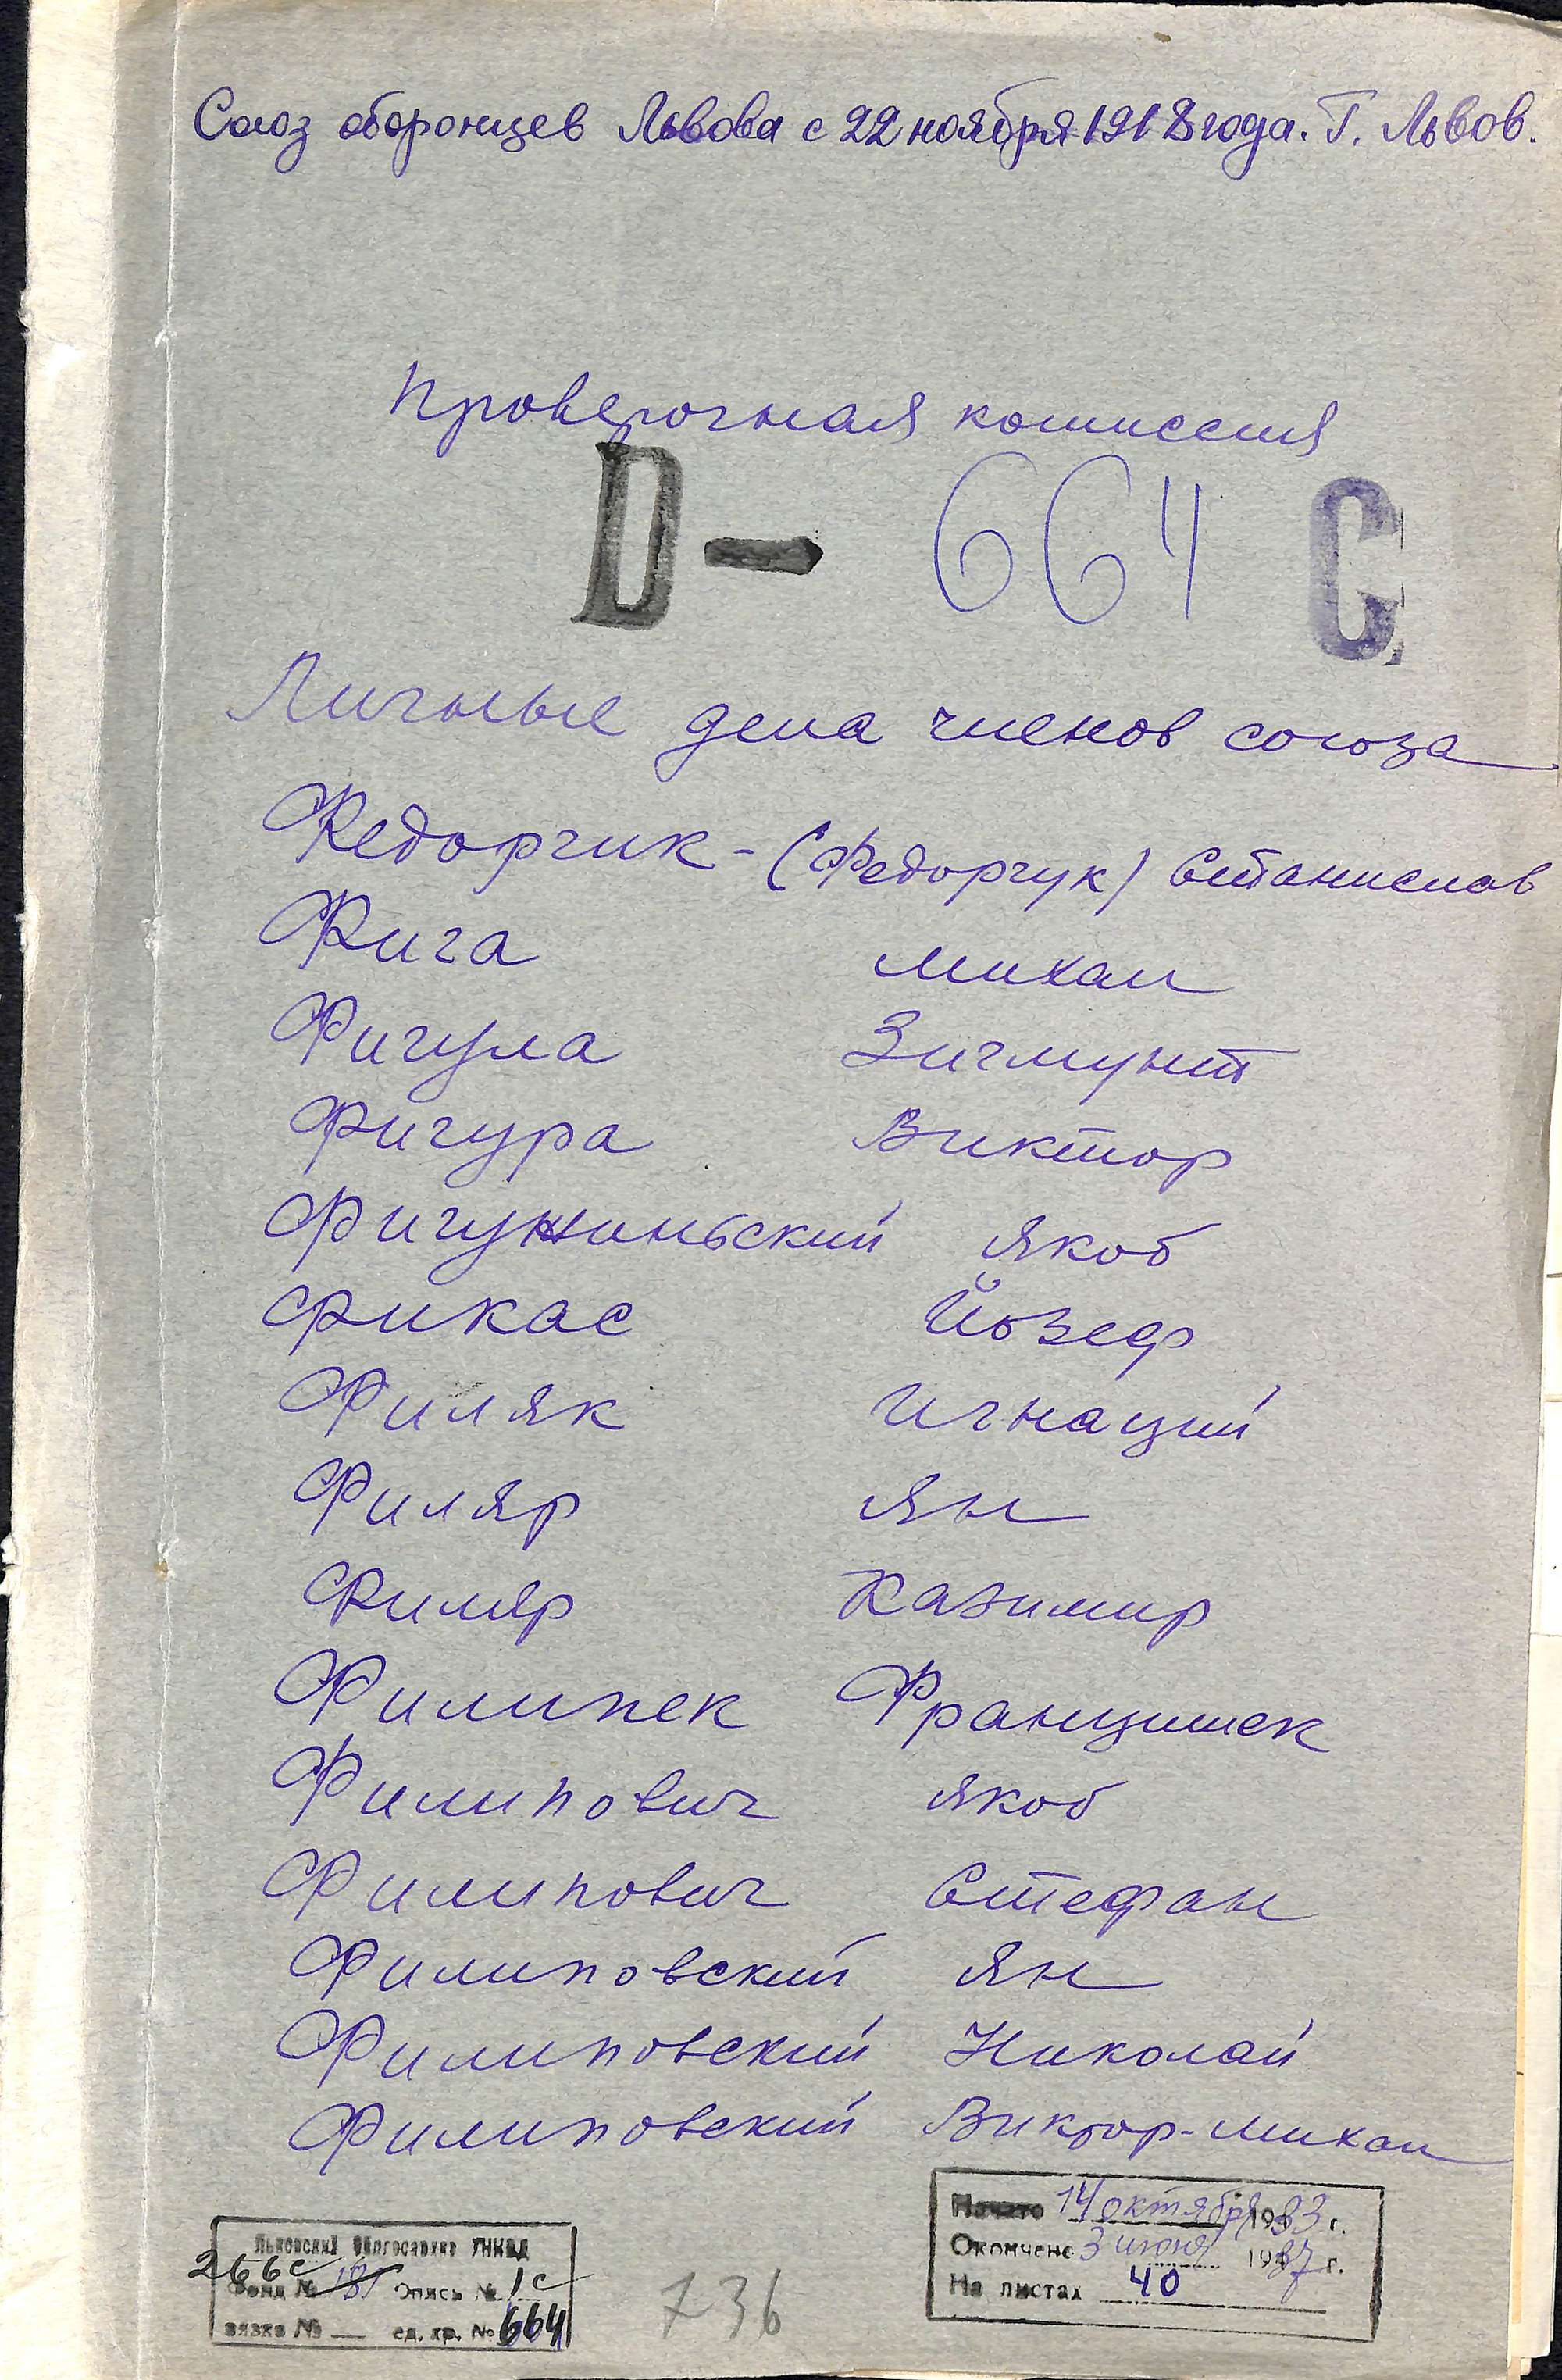 Союз оборонцев Львова с 22 ноября 1918 года. Г. Львов.
Проверочная комиссия
D- 664 С
Личные дела членов союза
Федорчик - (Федорчук) Станислав
Фига Михал
Фигула Зигмунт
Фигура Виктор
Фигужиньский Якоб
Фикас Йозеф
Филяк Игнаций
Филяр Ян
Филяр Казимир
Филипек Францишек
Филипович Якоб
Филипович Стефан
Филиповский Ян
Филиповский Николай
Филиповский Виктор-Михал
Львовский Облгосархив УНКВД
266с
Фонд № 181 Опись № 1с
вязка № — ед. хр. № 664
736
Начато 14 октября 1933 г.
Окончено 3 июня 1937 г.
На листах 40